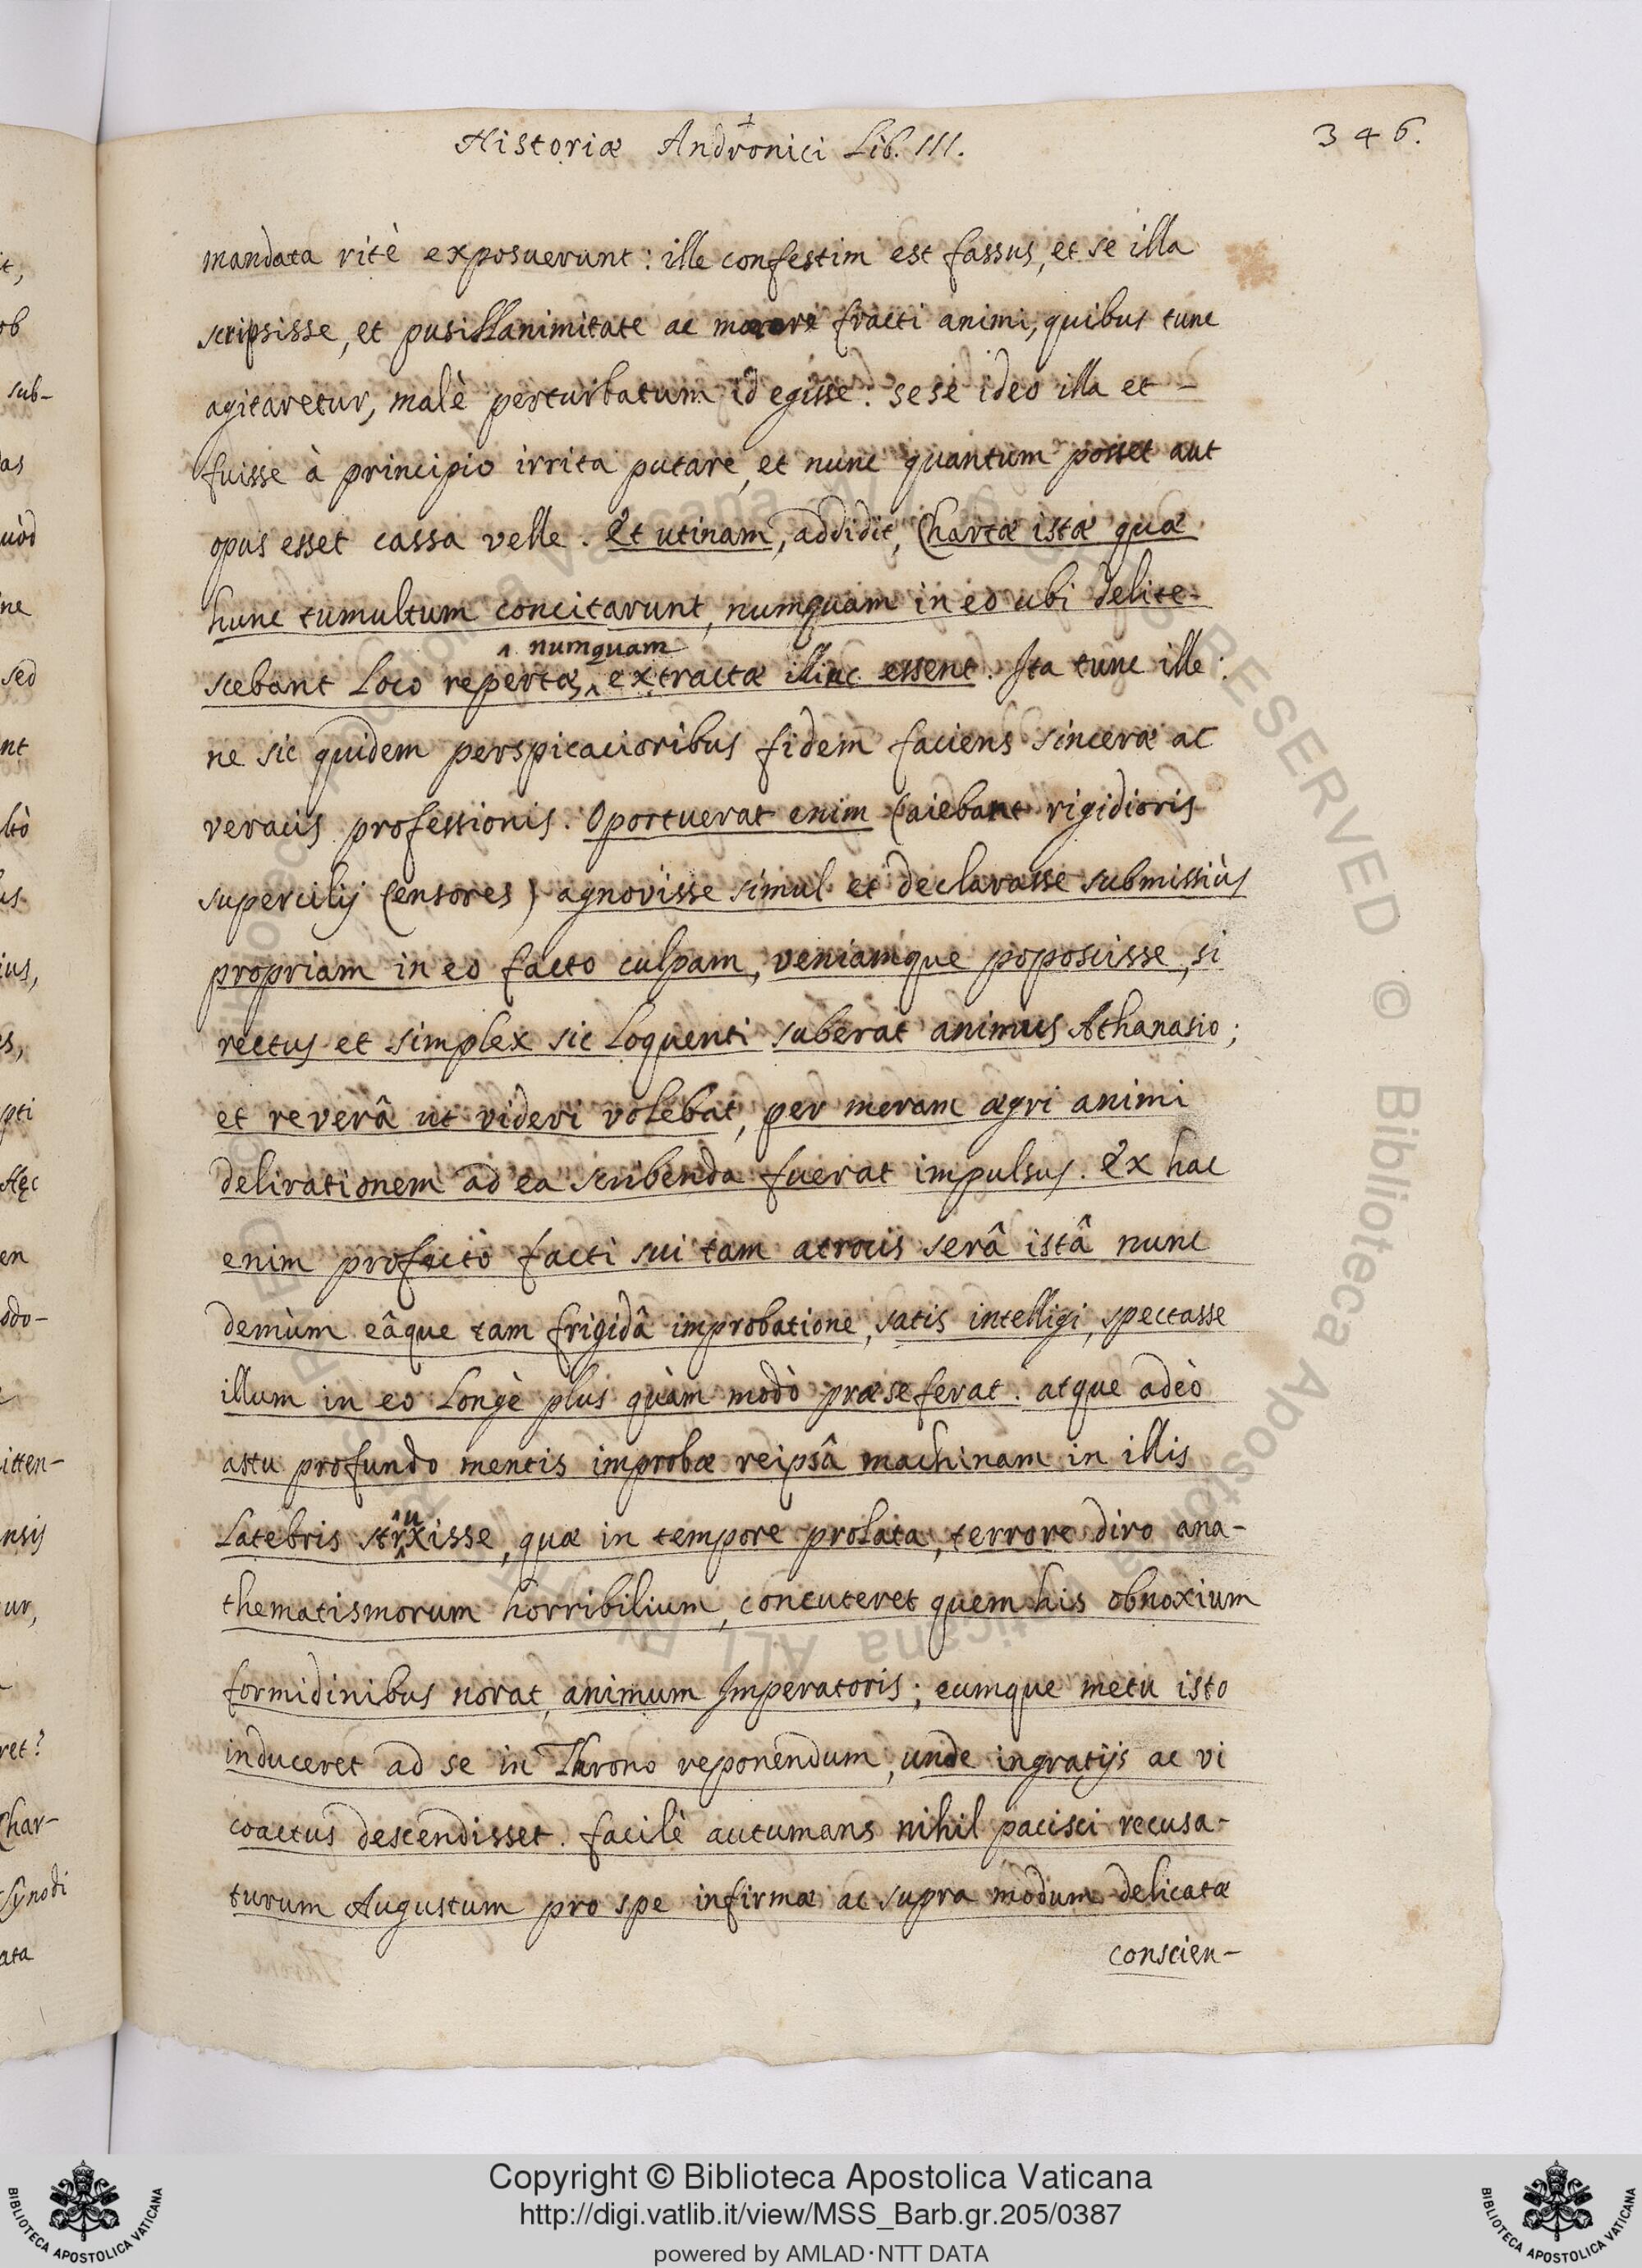 Historiæ Andronici Lib. III.
346.
mandata ritè exposuerunt: ille confestim est fassus, et se illa
scripsisse, et pusillanimitate ac mœrore fracti animi, quibus tunc
agitaretur, malè perturbatum id egisse. sese ideo illa et -
fuisse à principio irrita putare, et nunc quantum posset aut
opus esset cassa velle. Et utinam, addidit, Chartæ istæ quæ
hunc tumultum concitarunt, numquam in eo ubi delite-
numquam
scebant Loco repertæ, extractæ illinc essent. Ita tunc ille:
ne sic quidem perspicacioribus fidem faciens sinceræ ac
veracis professionis. Oportuerat enim (aiebant rigidioris
supercilij Censores) agnovisse simul et declarasse submissiùs
propriam in eo facto culpam, veniamque poposcisse, si
rectus et simplex sic Loquenti suberat animus Athanasio;
et reverâ ut videri volebat, per meram ægri animi
delirationem ad ea scribenda fuerat impulsus. Ex hac
enim profectò facti sui tam atrocis serâ istâ nunc
demùm eâque tam frigidâ improbatione, satis intelligi, spectasse
illum in eo Longè plus quàm modò præseferat. atque adeò
astu profundo mentis improbæ reipsâ machinam in illis
Latebris struxisse, quæ in tempore prolata, terrore diro ana-
thematismorum horribilium, concuteret quem his obnoxium
formidinibus norat, animum Imperatoris; eumque metu isto
induceret ad se in Throno reponendum, unde ingratijs ac vi
coactus descendisset. facilè autumans nihil pacisci recusa-
turum Augustum pro spe infirmæ ac supra modum delicatæ
conscien-
it,
ob
sub-
as
uòd
ne
sed
nt
ltò
us
ius,
es,
pti
Hęc
en
odo-
itten-
nsij
ur,
ret?
Char-
Synodi
ata
Copyright © Biblioteca Apostolica Vaticana
http://digi.vatlib.it/view/MSS_Barb.gr.205/0387
powered by AMLAD·NTT DATA
BIBLIOTECA APOSTOLICA VATICANA
BIBLIOTECA APOSTOLICA VATICANA